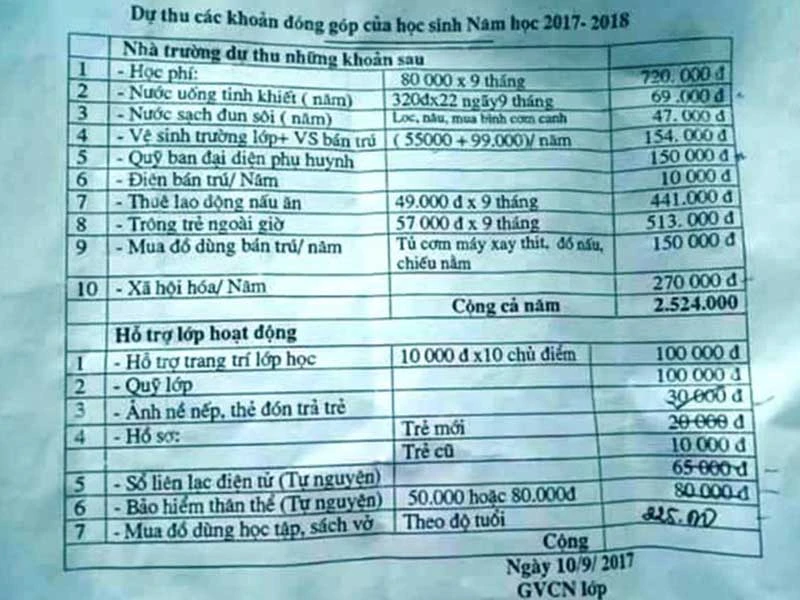 Dự thu các khoản đóng góp của học sinh Năm học 2017- 2018
Nhà trường dự thu những khoản sau
1 - Học phí: 80 000 x 9 tháng 720. 000 đ
2 - Nước uống tinh khiết ( năm) 320đx22 ngãy9 tháng 69 .000 đ
3 - Nước sạch đun sôi ( năm) Loc, nấu, mua bình cơm canh 47. 000 đ
4 - Vệ sinh trường lớp+ VS bán trú ( 55000 + 99.000)/ năm 154. 000 đ
5 - Quỹ ban đại diện phụ huynh 150 000 đ
6 - Điện bán trú/ Năm 10 000 đ
7 - Thuê lao động nấu ăn 49.000 đ x 9 tháng 441.000 đ
8 - Trông trẻ ngoài giờ 57 000 đ x 9 tháng 513. 000 đ
9 - Mua đồ dùng bán trú/ năm Tủ cơm máy xay thịt, đồ nấu, 150 000 đ
chiếu nằm
10 - Xã hội hóa/ Năm 270 000 đ
Cộng cả năm 2.524.000
Hỗ trợ lớp hoạt động
1 - Hỗ trợ trang trí lớp học 10 000 đ x10 chủ điểm 100 000 đ
2 - Quỹ lớp 100 000 đ
3 - Ảnh nề nếp, thẻ đón trả trẻ 30 000 đ
4 - Hồ sơ: Trẻ mới 20 000 đ
Trẻ cũ 10 000 đ
5 - Sổ liên lạc điện tử (Tự nguyện) 65 000 đ
6 - Bảo hiểm thân thể (Tự nguyện) 50.000 hoặc 80.000đ 80 000 đ
7 - Mua đồ dùng học tập, sách vở Theo độ tuổi
Cộng
Ngày 10/9/ 2017
GVCN lớp